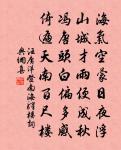 海氣空濛日夜浮
山城才雨便成秋
馮唐頭白偏多感
倚遍天南百尺樓
汪廣洋登南海驛樓詞